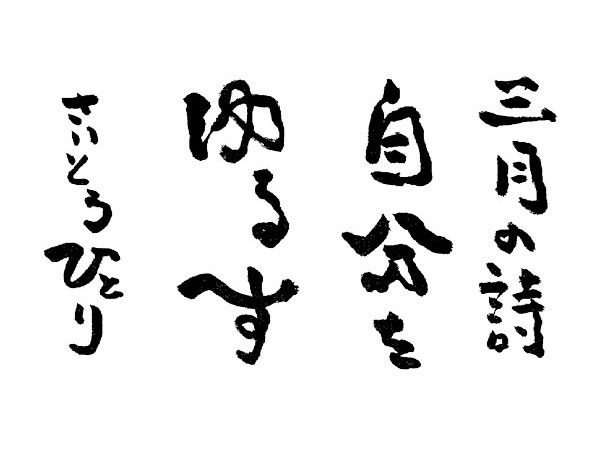 三月の詩
自分を
ゆるす
さいとうひとり